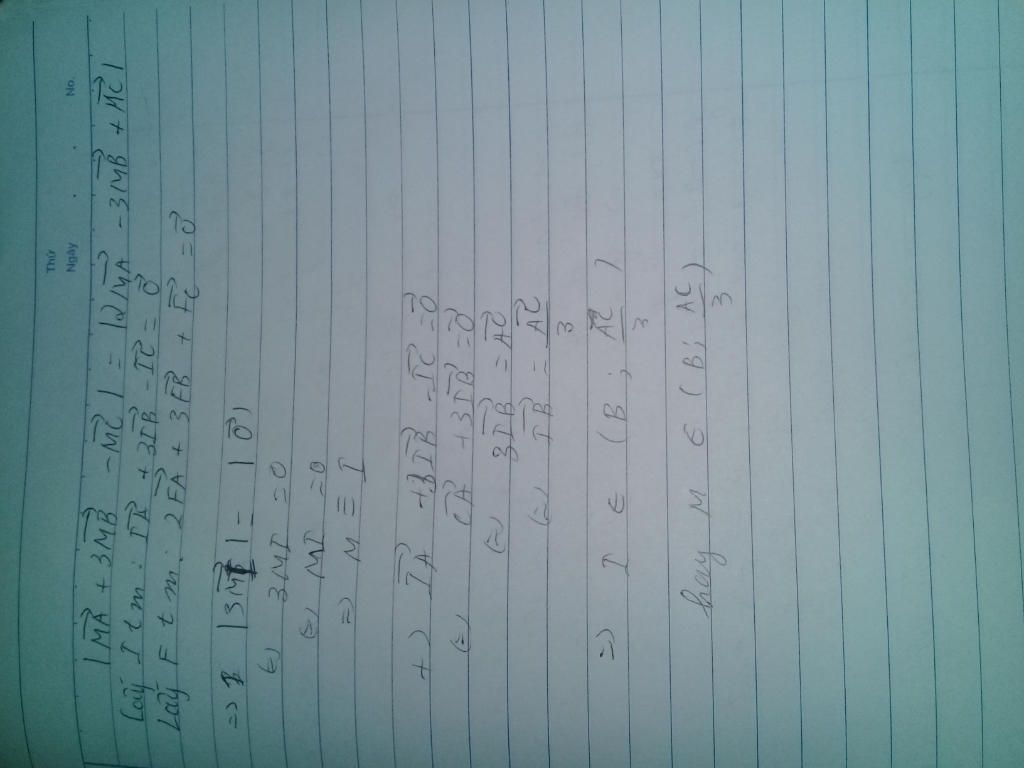 Thứ
Ngày . . No.
|MA⃗ + 3MB⃗ - MC⃗| = |2MA⃗ - 3MB⃗ + MC⃗|
Lấy I t m : IA⃗ + 3IB⃗ - IC⃗ = 0⃗
Lấy F t m : 2FA⃗ + 3FB⃗ + FC⃗ = 0⃗
=> |3MI⃗| = |0⃗|
(=) 3MI = 0
(=) MI = 0
=> M ≡ I
+) IA⃗ + 3IB⃗ - IC⃗ = 0⃗
(=) CA⃗ + 3IB⃗ = 0⃗
(=) 3IB⃗ = AC⃗
(=) IB⃗ = AC⃗/3
=> I ∈ (B; AC/3)
hay M ∈ (B; AC/3)